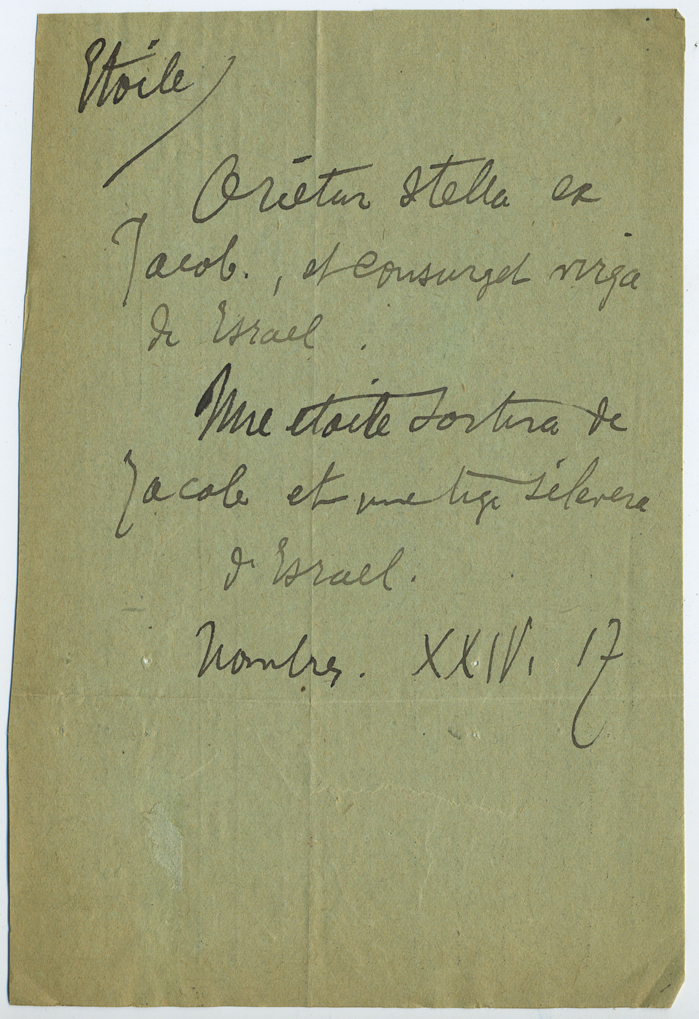 Etoile
Orietur stella ex
Jacob., et consurget virga
de Israel.
Une etoile sortira de
Jacob et une tige s'élevera
d'Israel.
Nombres. XXIV, 17